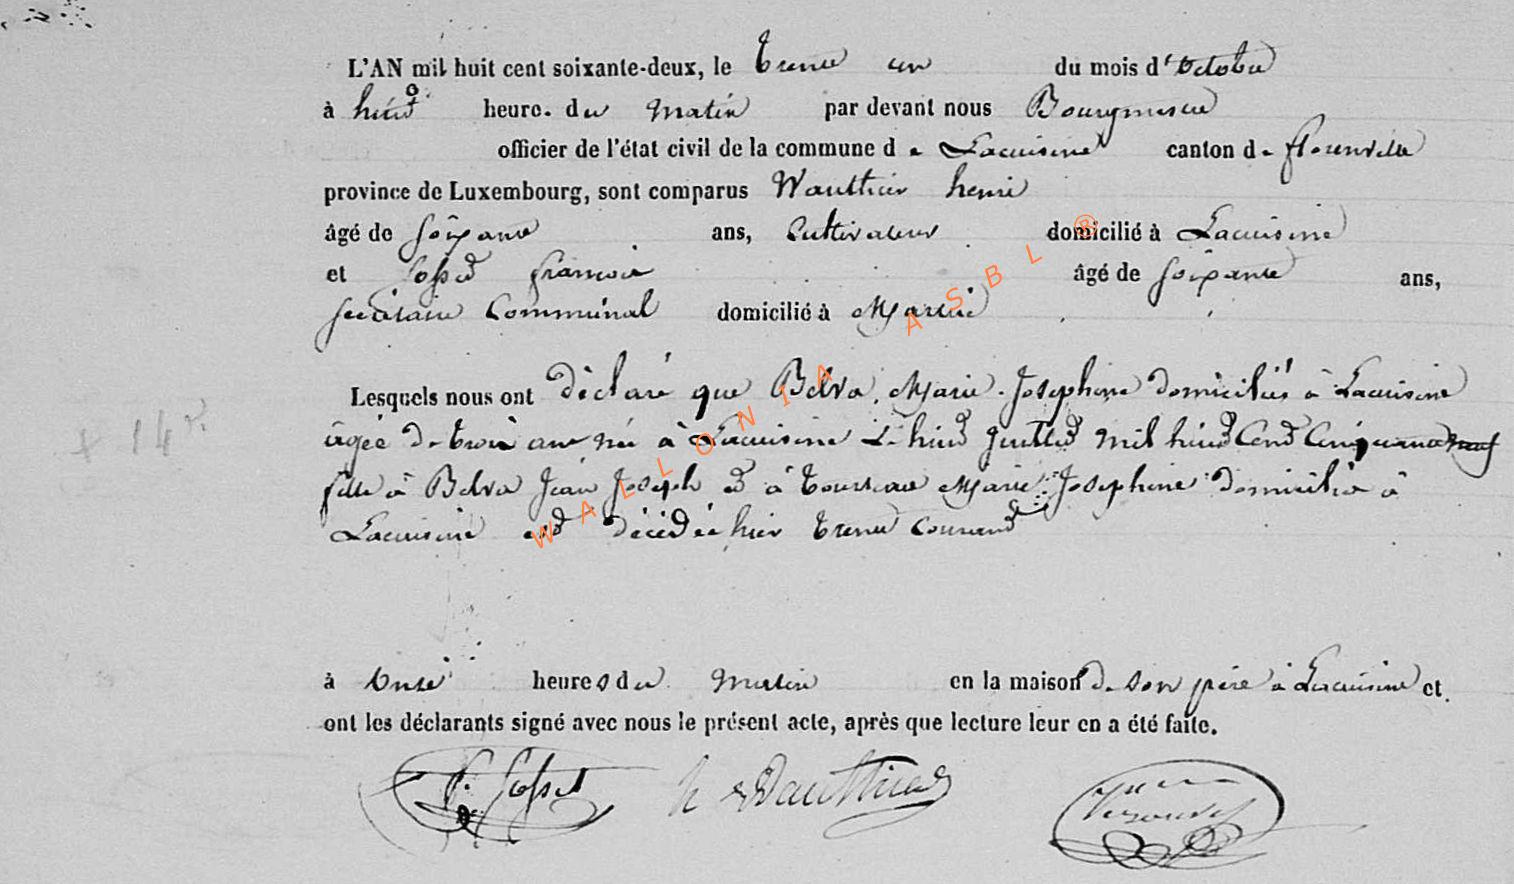 L'AN mil huit cent soixante-deux, le trente un du mois d'octobre
à huit heure. du matin par devant nous Bourgmestre
officier de l'état civil de la commune de Lacuisine canton de florenville
province de Luxembourg, sont comparus Wauthier henri
âgé de soixante ans, Cultivateur domicilié à Lacuisine
et françois âgé de soixante ans,
secrétaire Communal domicilié à Martué
Lesquels nous ont déclaré que Belva Marie Josephine domiciliée à Lacuisine
âgée de trois ans née à Lacuisine le huit juillet mil huit Cent Cinquante neuf
fille à Belva Jean Joseph et à Marie Josephine domicilié à
Lacuisine est décédée hier trente courant
+ 14
à onze heures du matin en la maison de son père à Lacuisine et
ont les déclarants signé avec nous le présent acte, après que lecture leur en a été faite.
h Wauthier
WALLONIA ASBL ®